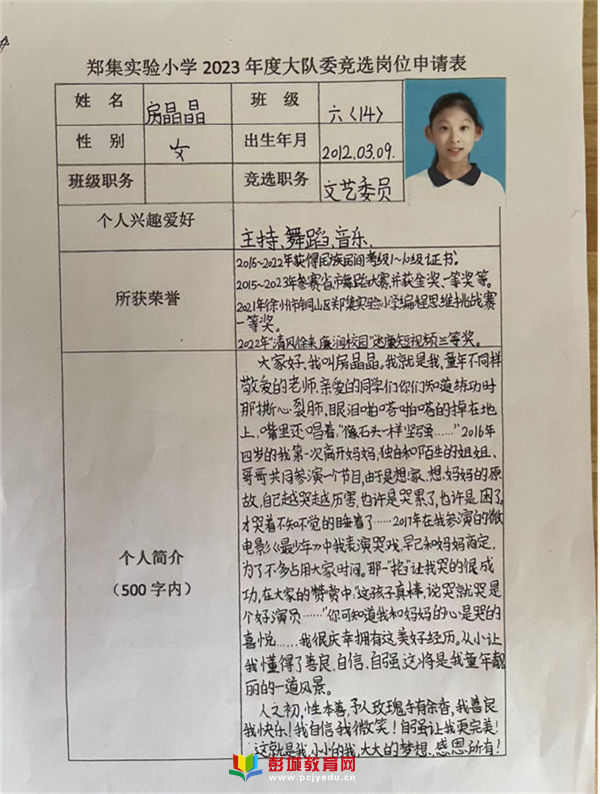 郑集实验小学 2023 年度大队委竞选岗位申请表
姓 名 房晶晶 班 级 六〈14〉
性 别 女 出生年月 2012.03.09.
班级职务 竞选职务 文艺委员
个人兴趣爱好 主持、舞蹈、音乐、
所获荣誉
2016~2022年获得民族民间考级1~10级证书。
2015~2023年参赛省市舞蹈大赛并获金奖、一等奖等。
2021年徐州市铜山区郑集实验小学编程思维挑战赛
一等奖。
2022年"清风徐来 廉润校园"短视频三等奖。
个人简介
（500 字内）
大家好,我叫房晶晶。我就是我,童年不同样
敬爱的老师,亲爱的同学们你们知道练功时
那撕心裂肺,眼泪啪嗒啪嗒的掉在地
上,嘴里还唱着,"像石头一样坚强……"2016年
四岁的我第一次离开妈妈,独自和陌生的姐姐、
哥哥共同参演一个节目,由于是想家、想妈妈的原
故,自己越哭越厉害,也许是哭累了,也许是困了,
才哭着不知不觉的睡着了……2017年在我参演的微
电影《最少年》中我表演哭戏,早已和妈妈商定,
为了不多占用大家时间。那一"掐"让我哭的很成
功,在大家的赞赏中,"这孩子真棒,说哭就哭是
个好演员……"你可知道我和妈妈的心是哭的
喜悦……我很庆幸拥有这美好经历。从小让
我懂得了善良、自信、自强这将是我童年靓
丽的一道风景。
人之初,性本善,予人玫瑰手有余香,我善良
我快乐!我自信我微笑!自强让我更完美!
这就是我,小小的我,大大的梦想、感恩所有!
彭城教育网
www.pcjyedu.cn